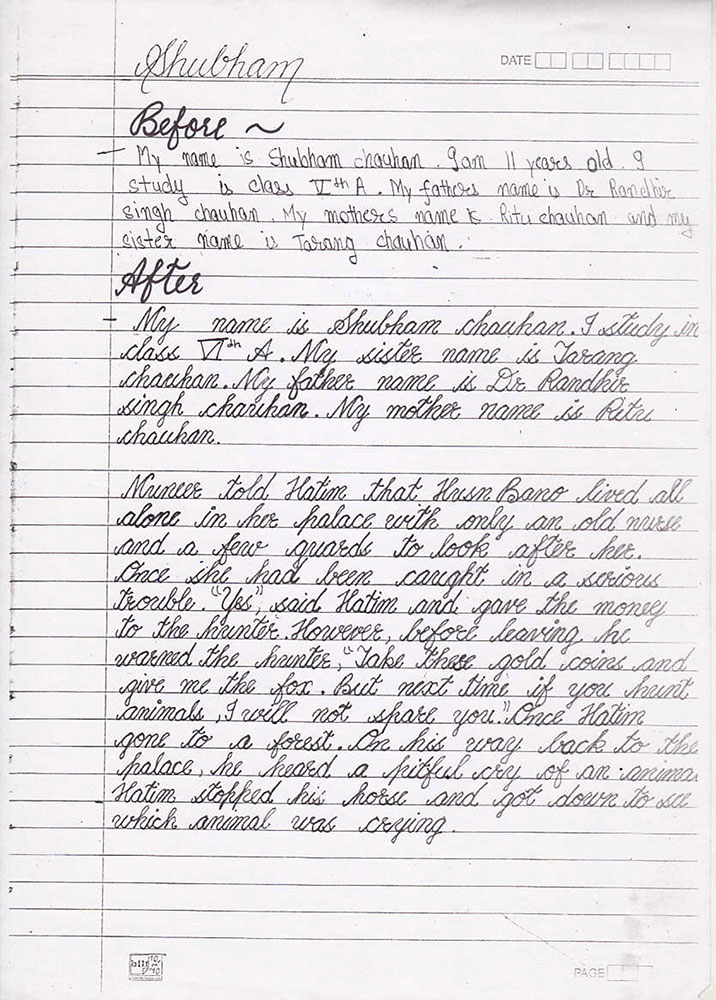 Shubham
DATE
Before ~
My name is Shubham chauhan. I am 11 years old. I
study is class Vth A. My fathers name is Dr Randhir
singh chauhan. My mothers name is Ritu chauhan and my
sister name is Tarang chauhan.
After
My name is Shubham chauhan. I study in
class VIth A. My sister name is Tarang
chauhan. My father name is Dr Randhir
singh chauhan. My mother name is Ritu
chauhan.
Muneer told Hatim that Husn Bano lived all
alone in her palace with only an old nurse
and a few guards to look after her.
Once she had been caught in a serious
trouble. "Yes", said Hatim and gave the money
to the hunter. However, before leaving he
warned the hunter, "Take these gold coins and
give me the fox. But next time if you hunt
animals, I will not spare you." Once Hatim
gone to a forest. On his way back to the
palace, he heard a pitful cry of an anima
Hatim stopped his horse and got down to see
which animal was crying.
PAGE